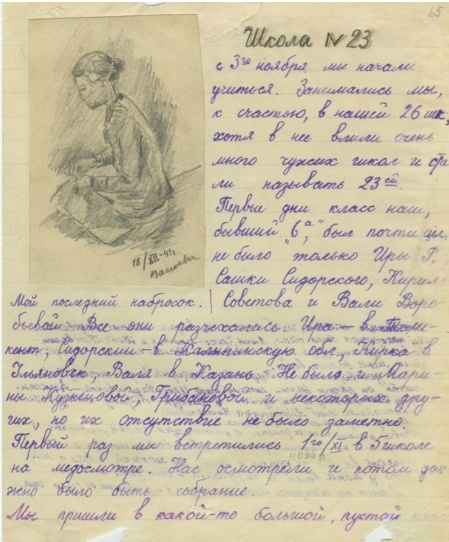 65
Школа N 23
с 3го ноября мы начали
учиться. Занимались мы,
к счастью, в нашей 26 шк,
хотя в нее влили очень
много чужих школ и ста
ли называть 23ей.
Первые дни класс наш,
бывший "6а", был почти цел,
не было только Иры Р,
Сашки Сидорского, Кирил
18/XII-41г.
Мой последний набросок. Советова и Вали Воро
бьевой. Все они разъехались Ира – в Таш
кент, Сидорский – в Калининскую обл, Кирка в
Ульяновск, Валя в Казань. Не было и
ны Кузнецовой, Грибановой и некоторых дру-
гих, но их отсутствие не было заметно.
Первый раз мы встретились 1го/XI в 5 школе
на медосмотре. Нас осмотрели и потом дол
жно было быть собрание.
Мы пришли в какой-то большой, пустой